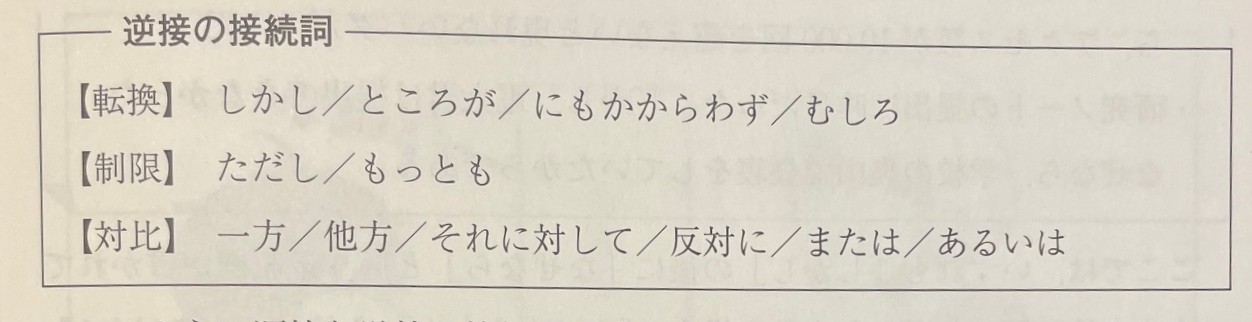 逆接の接続詞
【転換】 しかし／ところが／にもかからわず／むしろ
【制限】 ただし／もっとも
【対比】 一方／他方／それに対して／反対に／または／あるいは